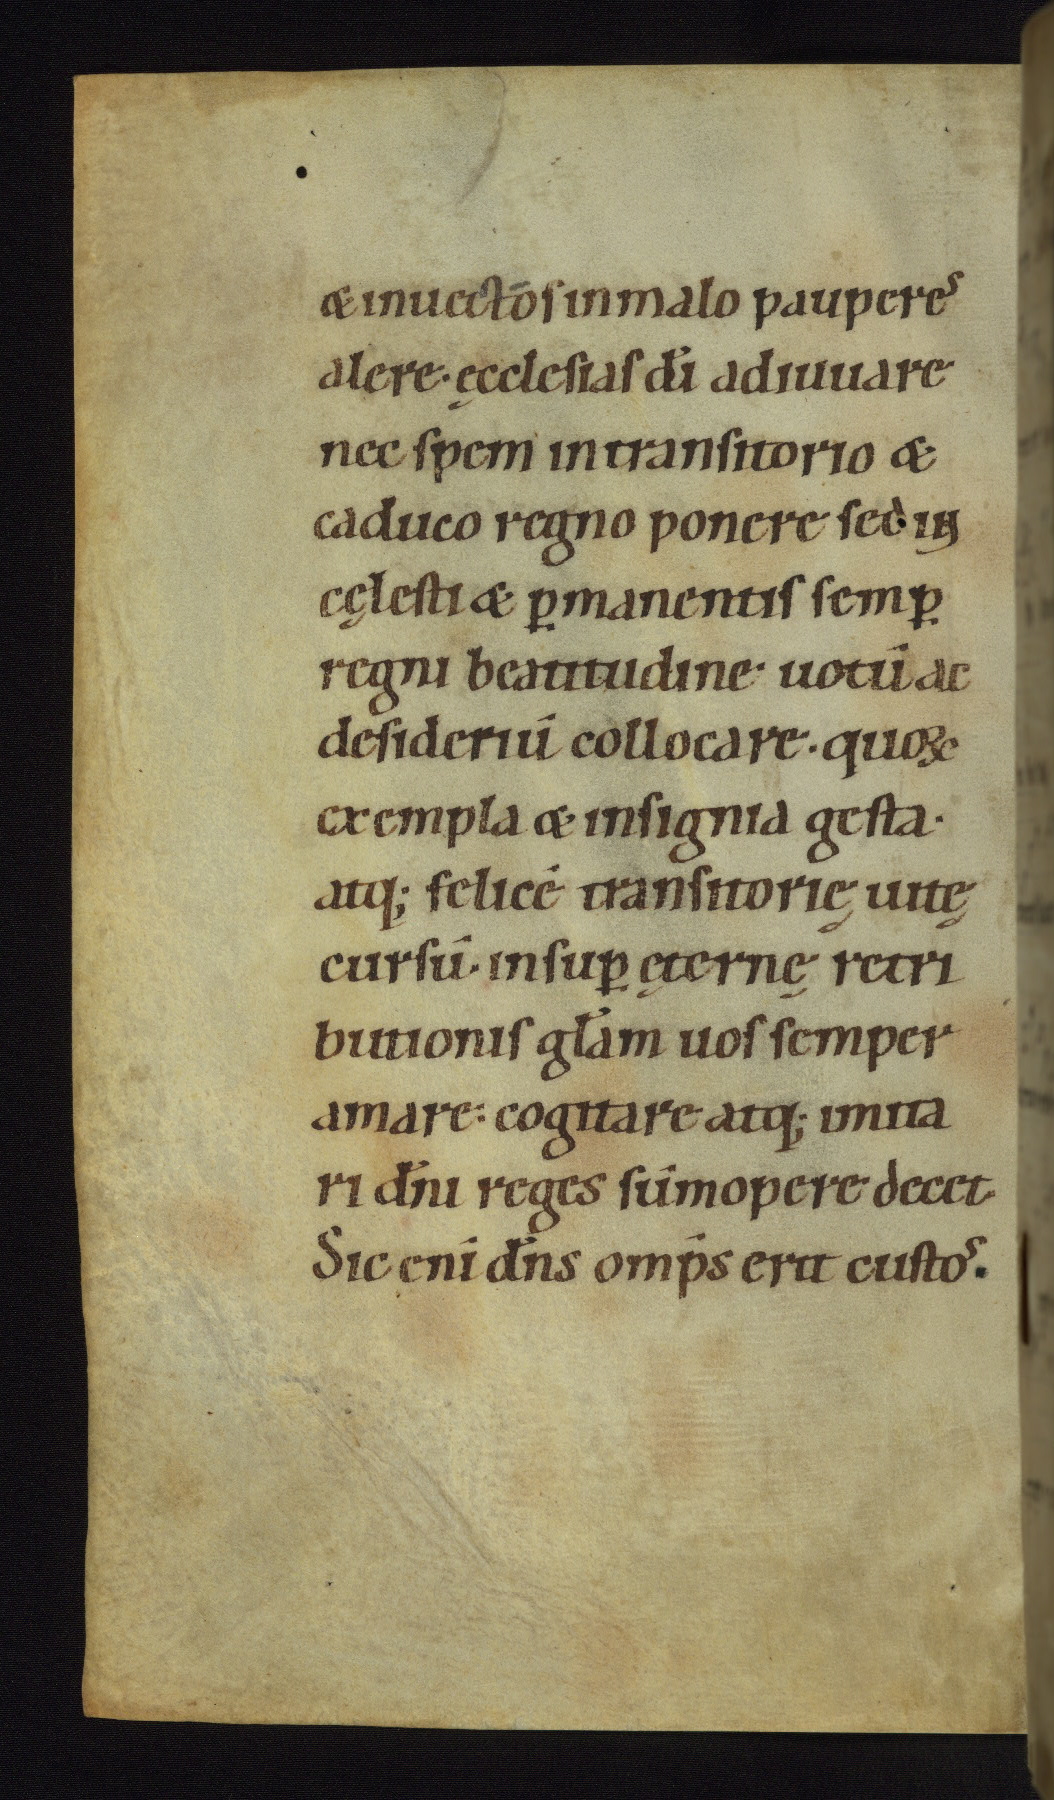 & inuectōs in malo pauperes
alere· ęcclesias dī adiuuare
nec spem in transitorio &
caduco regno ponere sed in
cęlesti & ꝑmanentis semꝑ
regni beatitudine· uotū ac
desideriū collocare· quoꝝ
exempla & insignia gesta·
atq; felicē transitorię uitę
cursū· insuꝑ ęternę retri
butionis gl̄am uos semper
amare: cogitare atq; imita
ri dn̄i reges sūmopere decet
Sic enī dn̄s omp̄s erit custos·